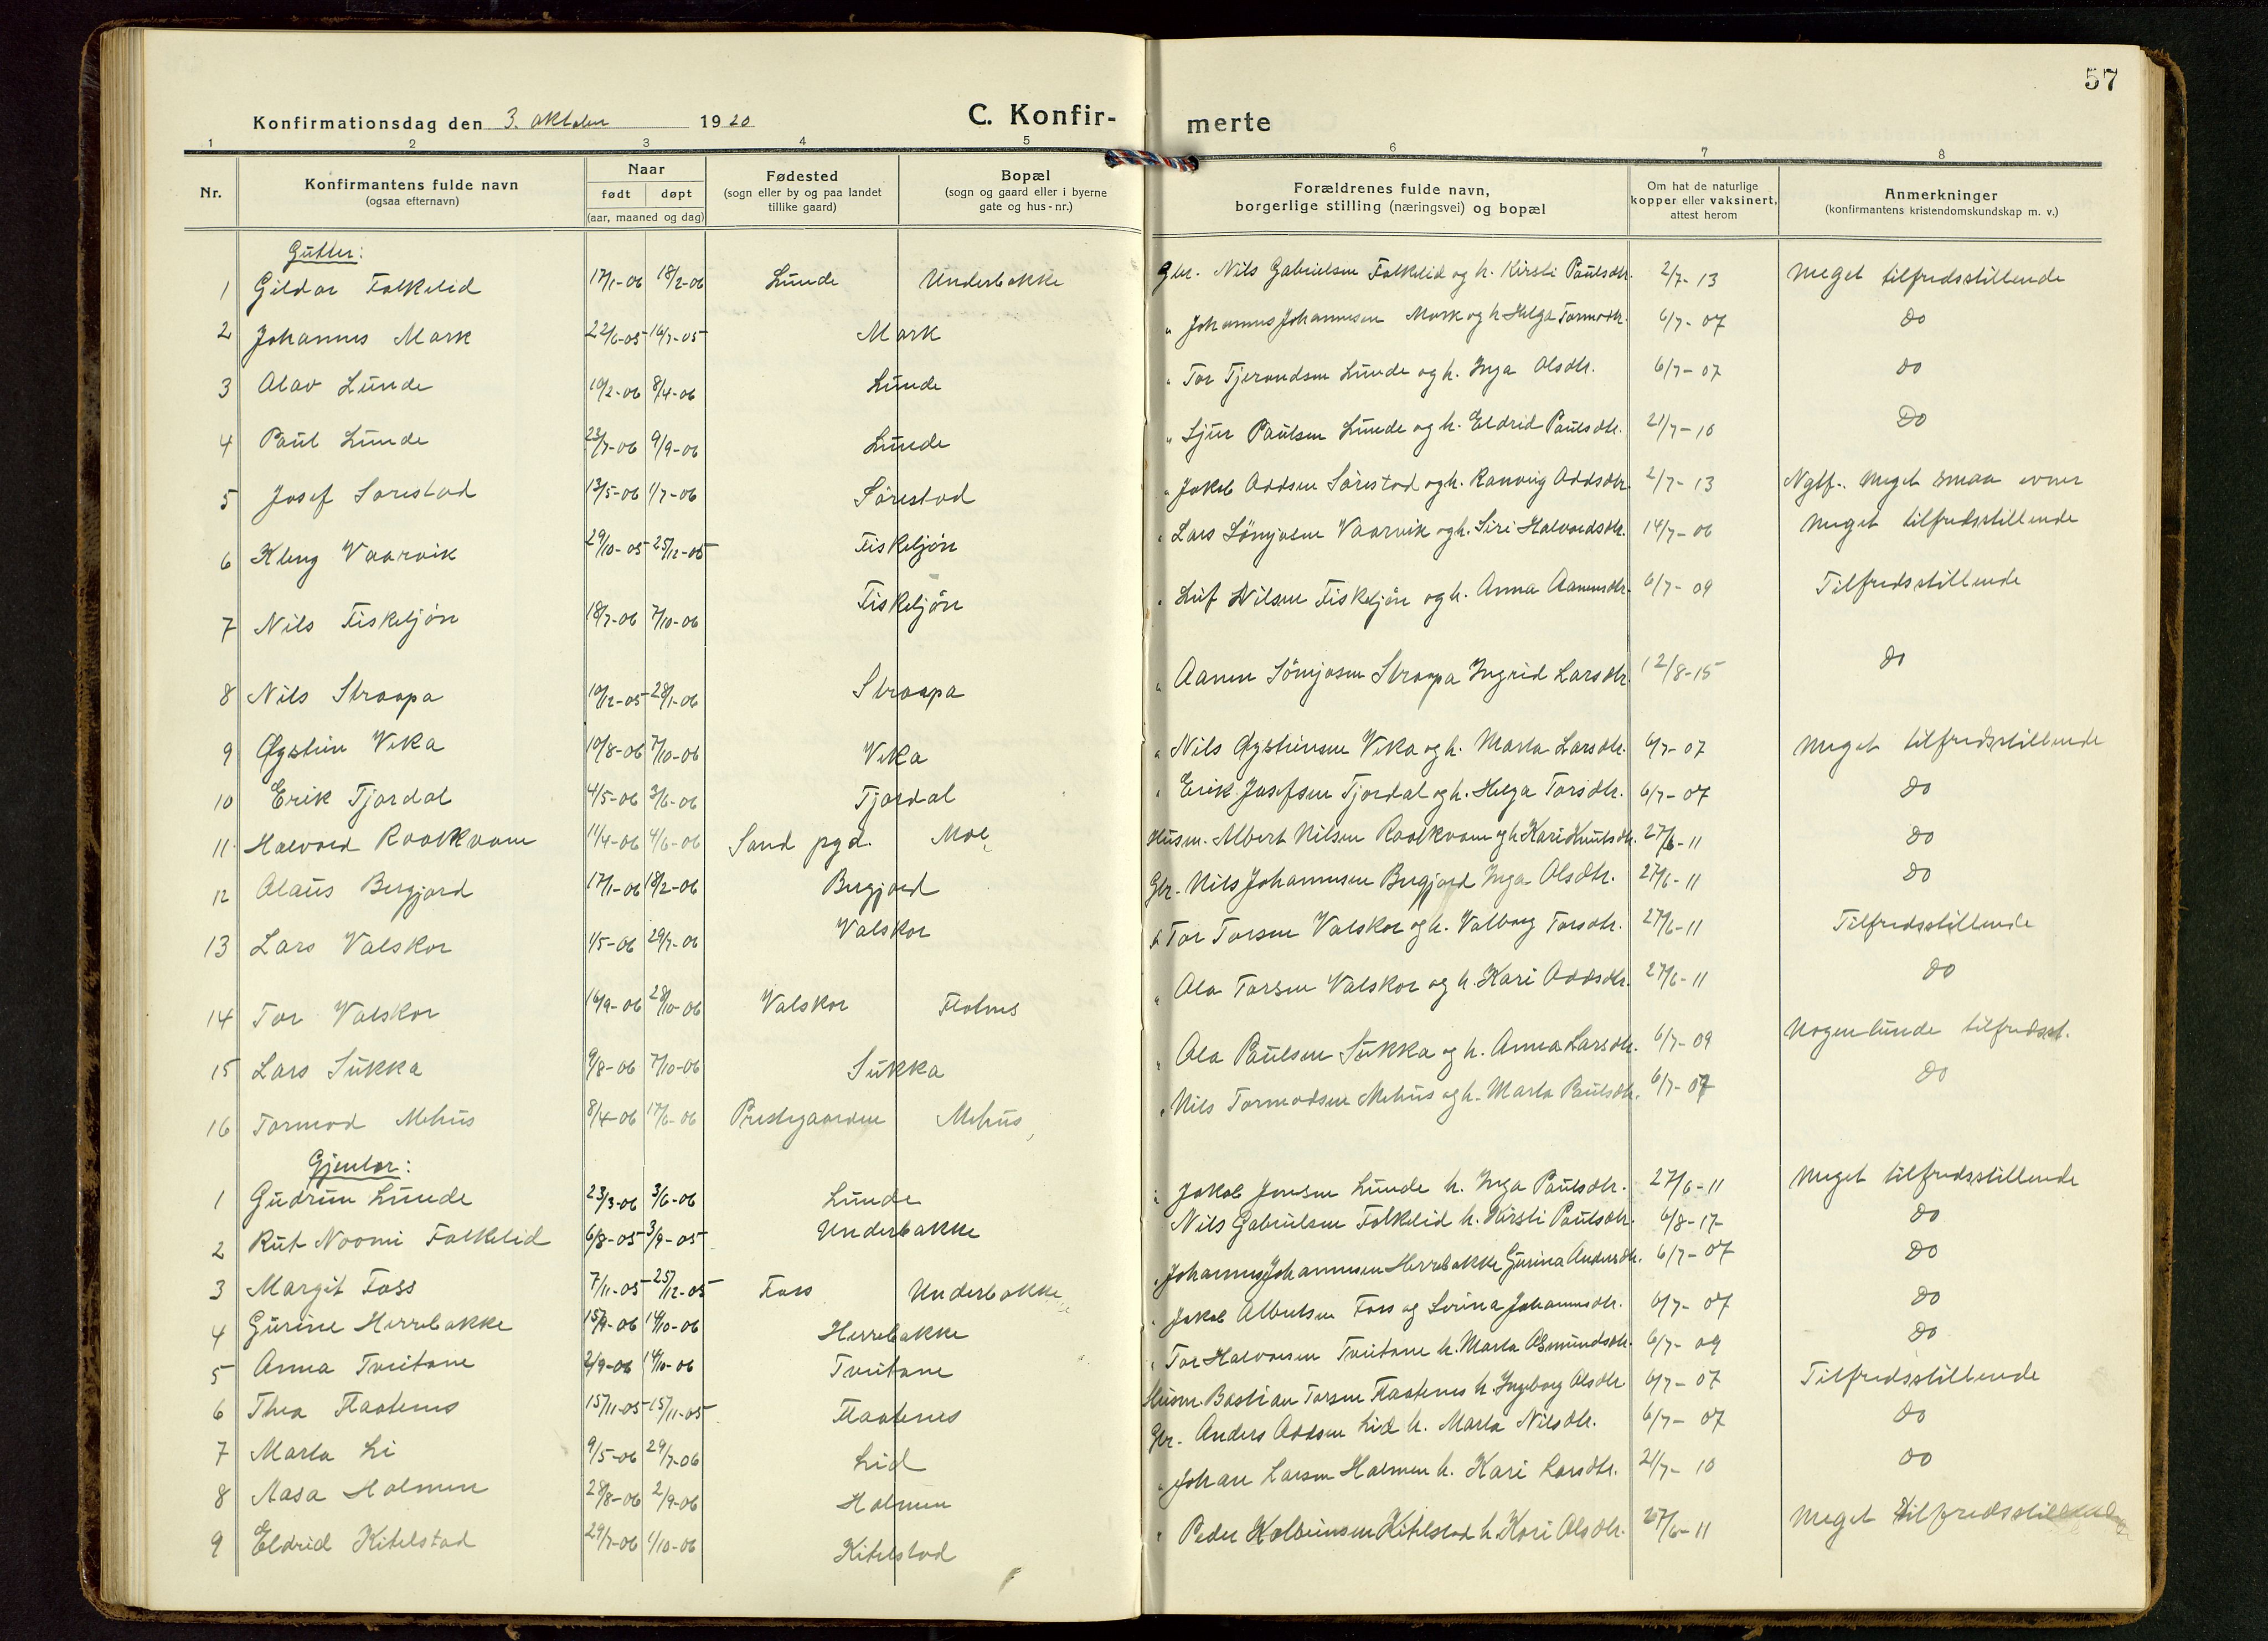 57
Konfirmationsdag den 3. oktober 1920
C. Konfir- merte
1 2 3 4 5 6 7 8
Nr.
Konfirmantens fulde navn
(ogsaa efternavn)
Naar
født døpt
(aar, maaned og dag)
Fødested
(sogn eller by og paa landet
tillike gaard)
Bopæl
(sogn og gaard eller i byerne
gate og hus-nr.)
Forældrenes fulde navn,
borgerlige stilling (næringsvei) og bopæl
Om hat de naturlige
kopper eller vaksinert,
attest herom
Anmerkninger
(konfirmantens kristendomskundskap m. v.)
Gutter:
1 Gildar Folkelid 17/1-06 18/2-06 Lunde Underbakke Gbr. Nils Gabrielsen Folkelid og h. Kirsti Paulsdtr. 2/7-13 Meget tilfredsstillende
2 Johannes Mark 22/6-05 16/7-05 Mark " Johannes Johannesen Mark og h Helga Tormodtr. 6/7-07 do
3 Olav Lunde 10/2-06 8/4-06 Lunde " Tor Tjerandsen Lunde og h. Inga Olsdtr. 6/7-07 do
4 Paul Lunde 23/7-06 9/9-06 Lunde " Sjur Paulsen Lunde og h. Eldrid Paulsdtr. 21/7-10 Do
5 Josef Sørestad 13/5-06 1/7-06 Sørestad " Jakob Oddsen Sørestad og h. Ranveig Oddsdtr. 2/7-13 Ngtf. Meget smaa evner
6 Kleng Vaarvik 29/10-05 25/12-05 Fiskeljøn " Lars Sømjosen Vaarvik og h. Siri Halvardsdtr. 14/7-06 Meget tilfredsstillende
7 Nils Fiskeljøn 18/7-06 7/10-06 Fiskeljøn " Leif Nilsen Fiskeljøn og h. Anna Aanensdtr. 6/7-09 Tilfredsstillende
8 Nils Straapa 10/12-05 28/1-06 Straapa " Aanen Sömjosen Straapa Ingrid Larsdtr. 12/8-15 do
9 Øystein Veka 10/8-06 7/10-06 Veka " Nils Øysteinsen Veka og h. Marta Larsdtr. 6/7-07 Meget tilfredsstillende
10 Erik Tjordal 4/5-06 3/6-06 Tjordal " Erik Josefsen Tjordal og h. Helga Torsdtr. 6/7-07 do
11 Halvard Raakkvam 11/4-06 4/6-06 Sand pgd. Moe Husm. Albert Nilsen Raakkvam og h Kari Knutsdtr. 27/6-11 do
12 Olaus Bergjord 17/1-06 18/2-06 Bergjord Gbr. Nils Johannesen Bergjord Inga Olsdtr. 27/6-11 do
13 Lars Valskor 1/5-06 29/7-06 Valskor " Tor Torsen Valskor og h. Valborg Torsdtr. 27/6-11 Tilfredsstillende
14 Tor Valskor 16/9-06 28/10-06 Valskor Holmes " Ola Torsen Valskor og h. Kari Oddsdtr. 27/6-11 do
15 Lars Sukka 9/8-06 7/10-06 Sukka " Ola Paulsen Sukka og h. Anna Larsdtr. 6/7-09 Nogenlunde tilfredsst.
16 Tormod Mehus 8/4-06 17/6-06 Prestegaarden Mehus " Nils Tormodsen Mehus og h. Marta Paulsdtr. 6/7-07 do
Gjenter:
1 Gudrun Lunde 23/3-06 3/6-06 Lunde " Jakob Jonsen Lunde h. Inga Paulsdtr. 27/6-11 Meget tilfredsstillende
2 Rut Noomi Folkelid 6/8-05 3/9-05 Underbakke Nils Gabrielsen Folkelid h. Kirsti Paulsdtr. 6/8-17 do
3 Margit Foss 7/11-05 25/12-05 Foss Underbakke " Johannes Johannesen Herrebakke Gurina Andersdtr. 6/7-07 do
4 Gurine Herrebakke 15/9-06 14/10-06 Herrebakke " Jakob Albertsen Foss og Serina Johannesdtr. 6/7-07 do
5 Anna Tveitane 2/9-06 14/10-06 Tveitane " Tor Halvorsen Tveitane h. Marta Osmundsdtr. 6/7-09 do
6 Thea Flaatenes 15/11-05 15/11-05 Flaatenes Husm. Bastian Torsen Flaatenes h. Ingeborg Olsdtr 6/7-07 Tilfredsstillende
7 Marta Li 9/5-06 29/7-06 Lid Gbr. Anders Oddsen Lid h. Marta Nilsdtr. 6/7-07 do
8 Aasa Holmen 28/8-06 2/9-06 Holmen " Johan Larsen Holmen h. Kari Larsdtr. 21/7-10 do
9 Eldrid Kitelstad 29/7-06 1/10-06 Kitelstad " Peder Kolbeinsen Kitelstad h. Kari Olsdtr. 27/6-11 Meget tilfredsstillende